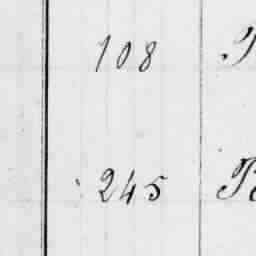 108
245